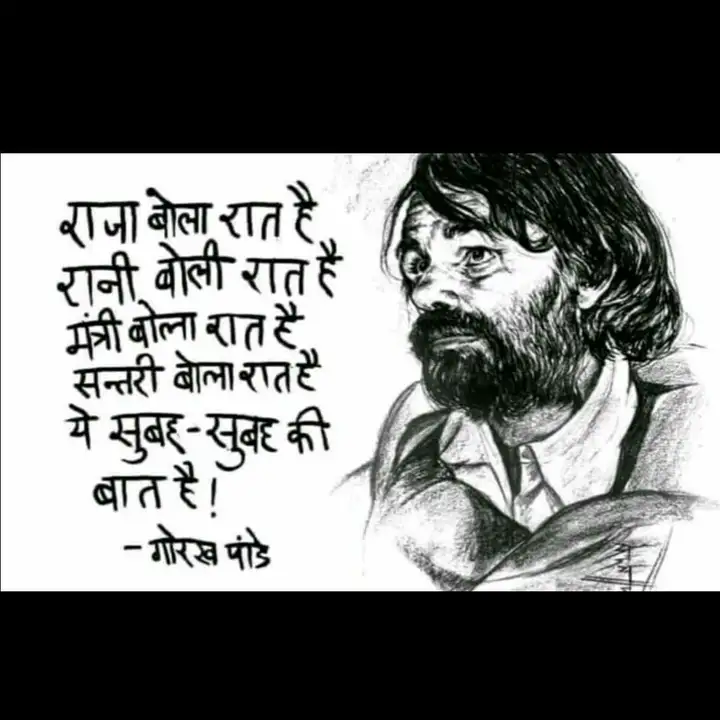 राजा बोला रात है
रानी बोली रात है
मंत्री बोला रात है
सन्तरी बोला रात है
ये सुबह-सुबह की
बात है!
- गोरख पांडे